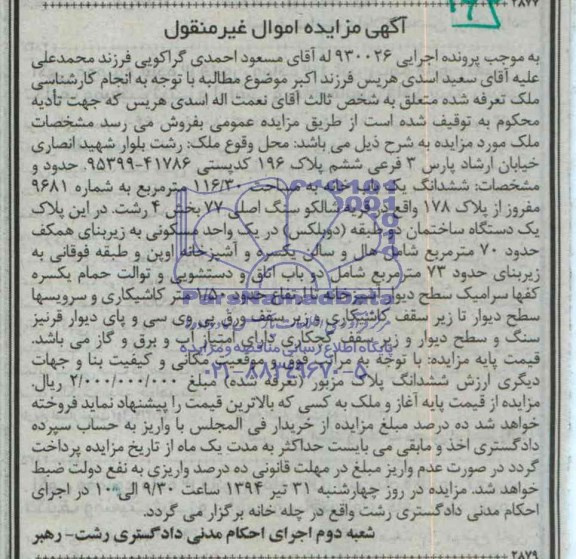 ۲۸۷۷
آگهی مزایده اموال غیرمنقول
به موجب پرونده اجرایی ۹۳۰۰۲۶ له آقای مسعود احمدی گراکویی فرزند محمدعلی
علیه آقای سعید اسدی هریس فرزند اکبر موضوع مطالبه با توجه به انجام کارشناسی
ملک تعرفه شده متعلق به شخص ثالث آقای نعمت اله اسدی هریس که جهت تأدیه
محکوم به توقیف شده است از طریق مزایده عمومی بفروش می رسد مشخصات
ملک مورد مزایده به شرح ذیل می باشد: محل وقوع ملک: رشت بلوار شهید انصاری
خیابان ارشاد پارس ۳ فرعی ششم پلاک ۱۹۶ کدپستی ۴۱۷۸۶-۹۵۳۹۹. حدود و
مشخصات: ششدانگ یک باب خانه به مساحت ۱۱۶/۳۰ مترمربع به شماره ۹۶۸۱
مفروز از پلاک ۱۷۸ واقع در قریه شالکو سنگ اصلی ۷۷ بخش ۴ رشت. در این پلاک
یک دستگاه ساختمان دو طبقه (دوبلکس) در یک واحد مسکونی به زیربنای همکف
حدود ۷۰ مترمربع شامل هال و سالن یکسره و آشپزخانه اوپن و طبقه فوقانی به
زیربنای حدود ۷۳ مترمربع شامل دو باب اتاق و دستشویی و توالت حمام یکسره
کفها سرامیک سطح دیوار آشپزخانه با ارتفاع حدود ۱/۵۰ متر کاشیکاری و سرویسها
سطح دیوار تا زیر سقف کاشیکاری و زیر سقف ورق پی وی سی و پای دیوار قرنیز
سنگ و سطح دیوار و زیر سقف گچکاری دارای امتیاز آب و برق و گاز می باشد.
قیمت پایه مزایده: با توجه به مراتب فوق و موقعیت مکانی و کیفیت بنا و جهات
دیگری ارزش ششدانگ پلاک مزبور (تعرفه شده) مبلغ ۲/۰۰۰/۰۰۰/۰۰۰ ریال.
مزایده از قیمت پایه آغاز و ملک به کسی که بالاترین قیمت را پیشنهاد نماید فروخته
خواهد شد ده درصد مبلغ مزایده از خریدار فی المجلس با واریز به حساب سپرده
دادگستری اخذ و مابقی می بایست حداکثر به مدت یک ماه از تاریخ مزایده پرداخت
گردد در صورت عدم واریز مبلغ در مهلت قانونی ده درصد واریزی به نفع دولت ضبط
خواهد شد. مزایده در روز چهارشنبه ۳۱ تیر ۱۳۹۴ ساعت ۹/۳۰ الی ۱۰ در اجرای
احکام مدنی دادگستری رشت واقع در چله خانه برگزار می گردد.
شعبه دوم اجرای احکام مدنی دادگستری رشت- رهبر
۲۸۷۹
ParsNamadData
پایگاه اطلاع رسانی مناقصه و مزایده
۰۲۱-۸۸۳۴۹۶۷۰-۵